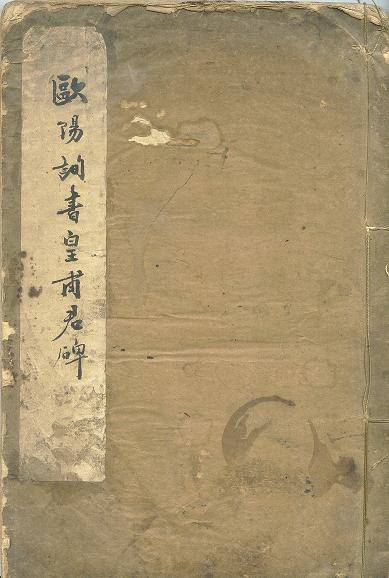 歐陽詢書皇甫君碑